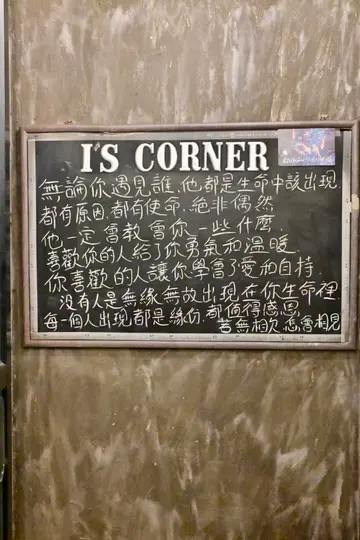 I'S CORNER
無論你遇見誰.他都是生命中該出現.
都有原因.都有使命.絕非偶然
他一定會教會你一些什麼.
喜歡你的人給了你勇氣和溫暖.
你喜歡的人讓你學會了愛和自持.
沒有人是無緣無故出現在你生命裡.
每一個人出現都是緣份.都值得感恩.
若無相欠.怎會相見